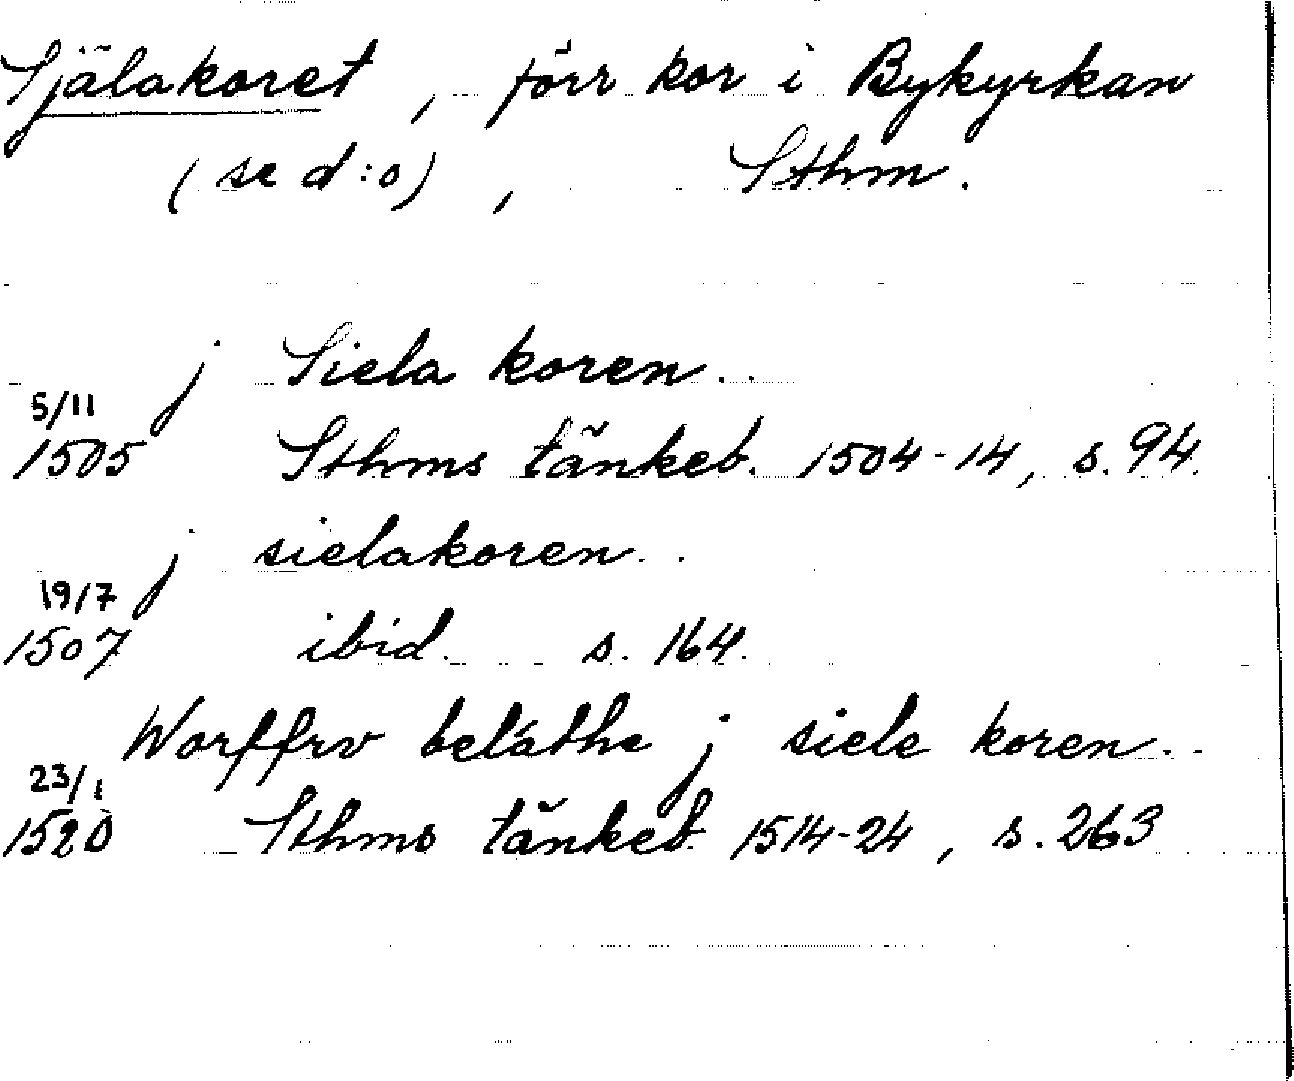 Själakoret, förr kor i Bykyrkan
(se d:o), Sthm.
j Siela koren..
5/11
1505 Sthms tänkeb. 1504-14, s. 94.
j sielakoren..
19/7
1507 ibid. s. 164.
Worffrv beläthe j siele koren..
23/1
1520 Sthms tänkeb. 1514-24, s. 263